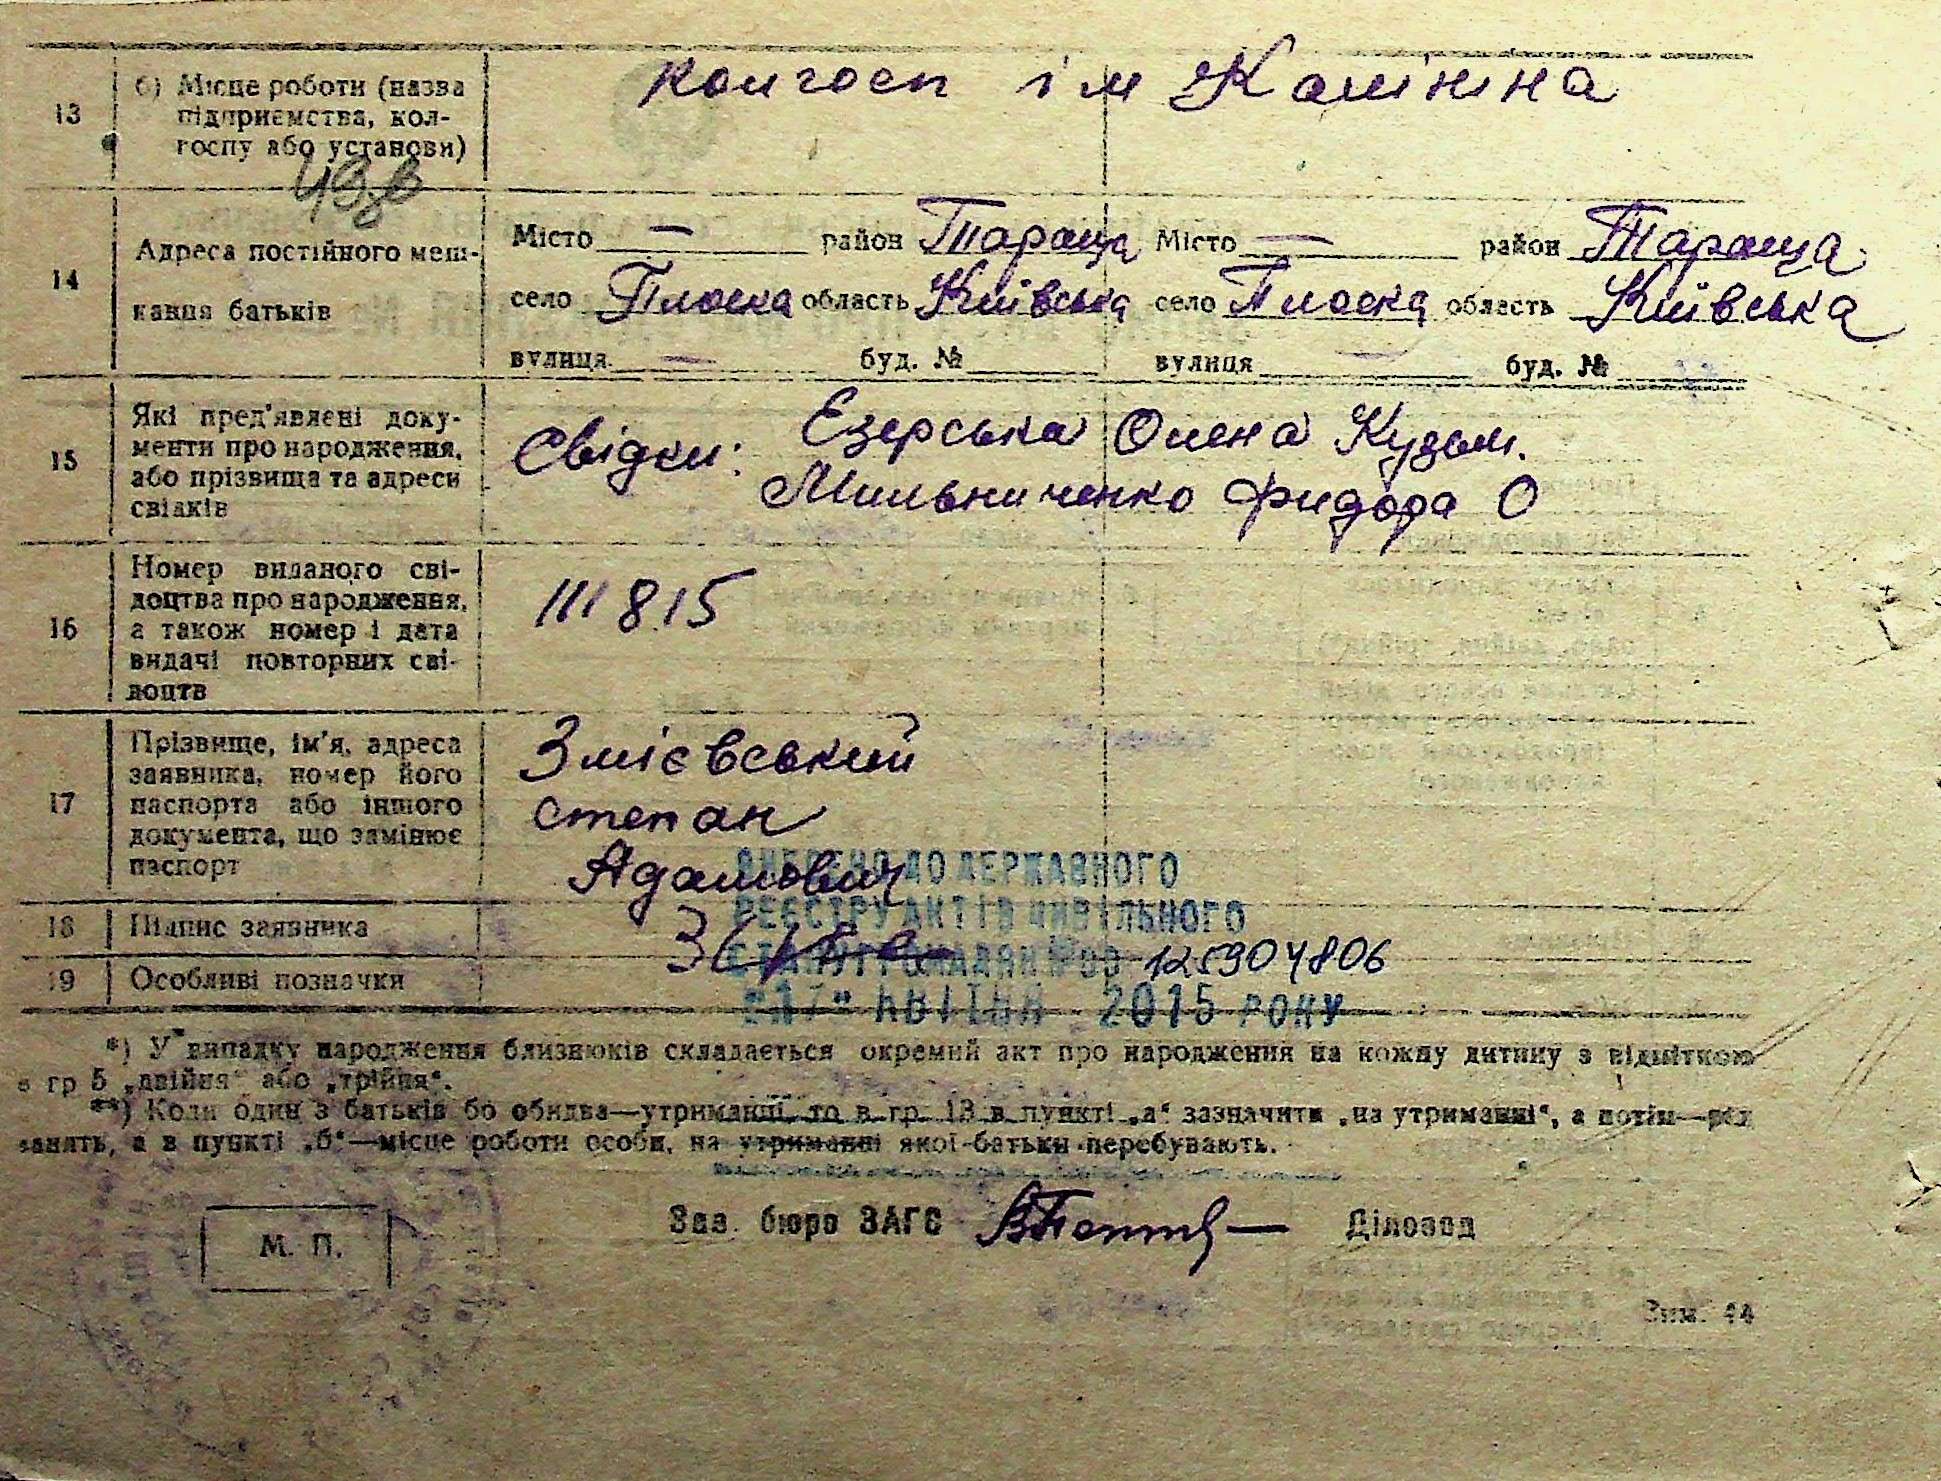 13 б) Місце роботи (назва підприємства, колгоспу або установи)
колгосп ім Калініна
14 Адреса постійного мешкання батьків
Місто — район Тараща Місто — район Тараща
село Плоска область Київська село Плоска область Київська
вулиця — буд. № вулиця — буд. №
15 Які пред'явлені документи про народження, або прізвища та адреси свідків
Свідки: Езерська Олена Кузьм.
Мильниченко Фидора О
16 Номер виданого свідоцтва про народження, а також номер і дата видачі повторних свідоцтв
111815
17 Прізвище, ім'я, адреса заявника, номер його паспорта або іншого документа, що замінює паспорт
Змієвський
Степан
Адамович
ВНЕСЕНО ДО ДЕРЖАВНОГО
РЕЄСТРУ АКТІВ ЦИВІЛЬНОГО
18 Підпис заявника
СТАНУ ГРОМАДЯН
19 Особливі позначки
"17" КВІТНЯ 2015 РОКУ
*) У випадку народження близнюків складається окремий акт про народження на кожну дитину з відміткою
в гр 5 „двійня“ або „трійня“.
**) Коли один з батьків бо обидва—утриманці, то в гр. 13 в пункті „а“ зазначити „на утриманні“, а потім—рід
занять, а в пункті „б“—місце роботи особи, на утриманні якої батьки перебувають.
М. П.
Зав. бюро ЗАГС Діловод
Зим. 44